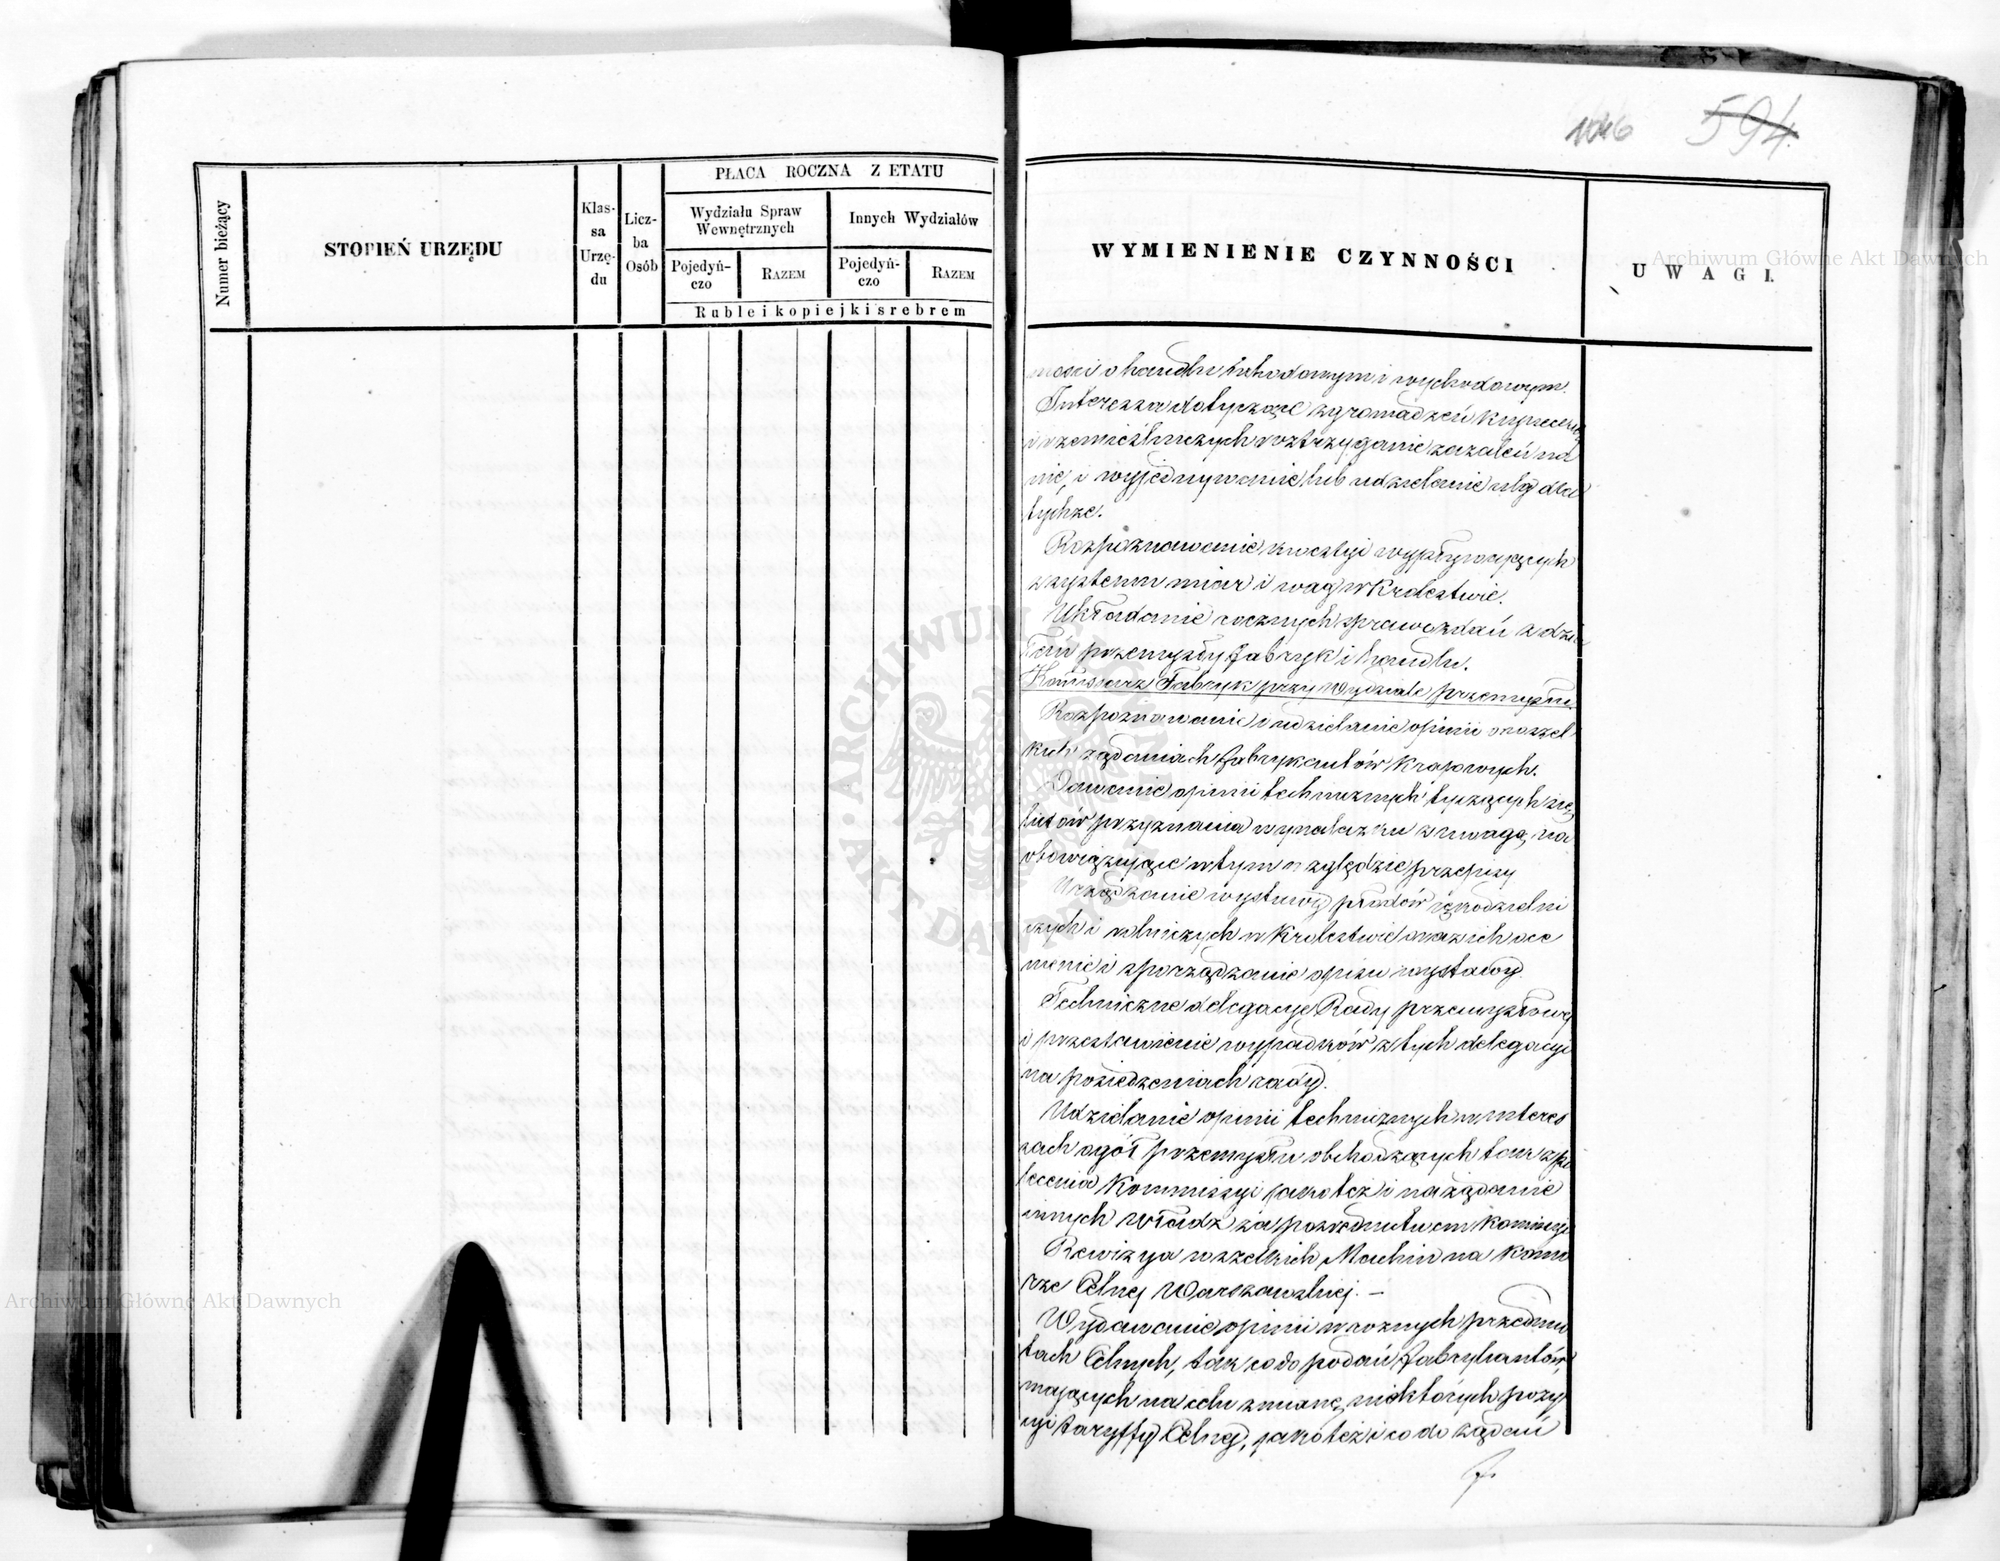 1046 594.
Numer bieżący
STOPIEŃ URZĘDU
Klas-
sa
Urzę-
du
Licz-
ba
Osób
PŁACA ROCZNA Z ETATU
Wydziału Spraw
Wewnętrznych
Innych Wydziałów
Pojedyń-
czo
RAZEM
Pojedyń-
czo
RAZEM
Ruble i kopiejki srebrem
WYMIENIENIE CZYNNOŚCI
UWAGI.
mości o handlu wchodowym i wychodowym.
Interessa dotyczące zgromadzeń kupieckich
i rzemieślniczych roztrzyganie zażaleń na
nie, i wyjednywanie lub udzielanie ulg dla
tychże.
Rozpoznawanie kwestyi wypływających
z systemu miar i wag w Królestwie.
Układanie rocznych sprawozdań z dzia
łań przemysły fabryk i handlu.
Kommissarz Fabryk przy Wydziale przemysłu.
Rozpoznawanie i udzielanie opinii o wszel
kich żądaniach fabrykantów krajowych.
Dawanie opinii technicznych tyczących się
listów przyznania wynalazku z uwagą na
obowiązujące w tym względzie przepisy
Urządzanie wystawy płodów rękodzielni
czych i rolniczych w Królestwie oraz ich oce
nienie i sporządzanie opisu wystawy.
Techniczne delegacye Rady przemysłowej
i przestawienie wypadków z tych delegacyi
na posiedzeniach rady.
Udzielanie opinii technicznych w interes
sach ogół przemysłu obchodzących tak z po
lecenia Kommissyi jako też i na żądanie
innych Władz za pośrednictwem Kommissyi
Rewizya wszelkich Machin na komo
rze Celnej Warszawskiej. —
Wydawanie opinii w roznych przedmio
tach Celnych, tak co do podań fabrykantów,
mających na celu zmianę niektórych pozy
cyi taryffy Celnej, jako też i co do żądań
Archiwum Główne Akt Dawnych
Archiwum Główne Akt Dawnych
ARCHIWUM GŁÓWNE AKT DAWNYCH